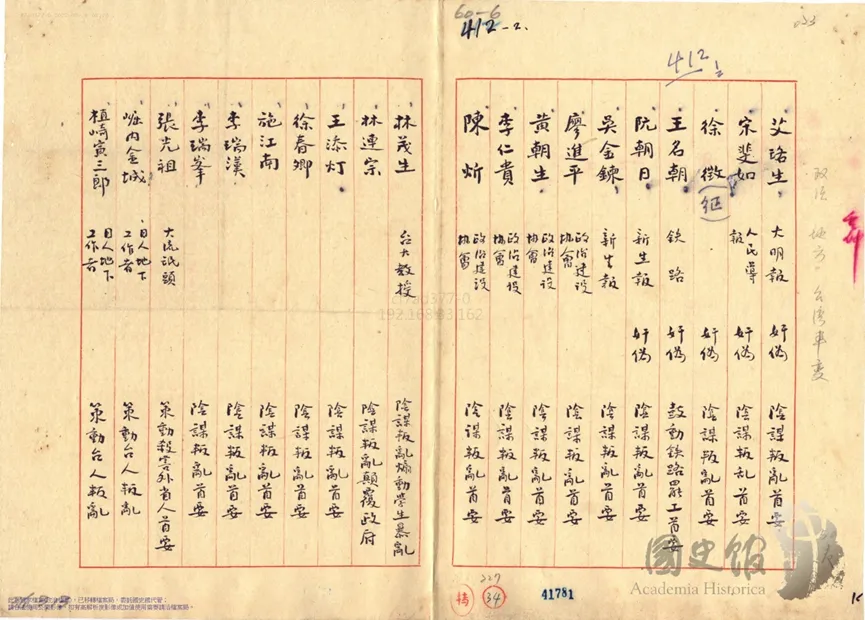 60-6
412-2.
412
艾璐生 大明報 奸偽 陰謀叛亂首要
宋斐如 人民導報 奸偽 陰謀叛乱首要
徐徵(征) 奸偽 陰謀叛亂首要
王名朝 鉄路 奸偽 鼓動鉄路罷工首要
阮朝日 新生報 奸偽 陰謀叛亂首要
吳金鍊 新生報 陰謀叛亂首要
廖進平 政治建設協會 陰謀叛亂首要
黃朝生 政治建設協會 陰謀叛亂首要
李仁貴 政治建設協會 陰謀叛亂首要
陳炘 政治建設協會 陰謀叛亂首要
林茂生 台大教授 陰謀叛亂煽動學生暴亂
林連宗 陰謀叛亂顛覆政府
王添灯 陰謀叛亂首要
徐春卿 陰謀叛亂首要
施江南 陰謀叛亂首要
李瑞漢 陰謀叛亂首要
李瑞峯 陰謀叛亂首要
張光祖 大流氓頭 策動殺害外省人首要
堀内金城 日人地下工作者 策動台人叛亂
植崎寅三郎 日人地下工作者 策動台人叛亂
台湾事变
227
34
41781
國史館
Academia Historica
192.168.83.162